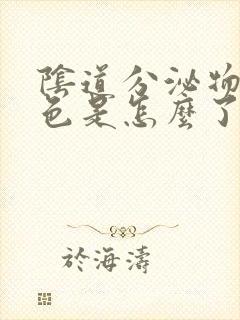 陰道分泌物
色是怎麼了
於海濤